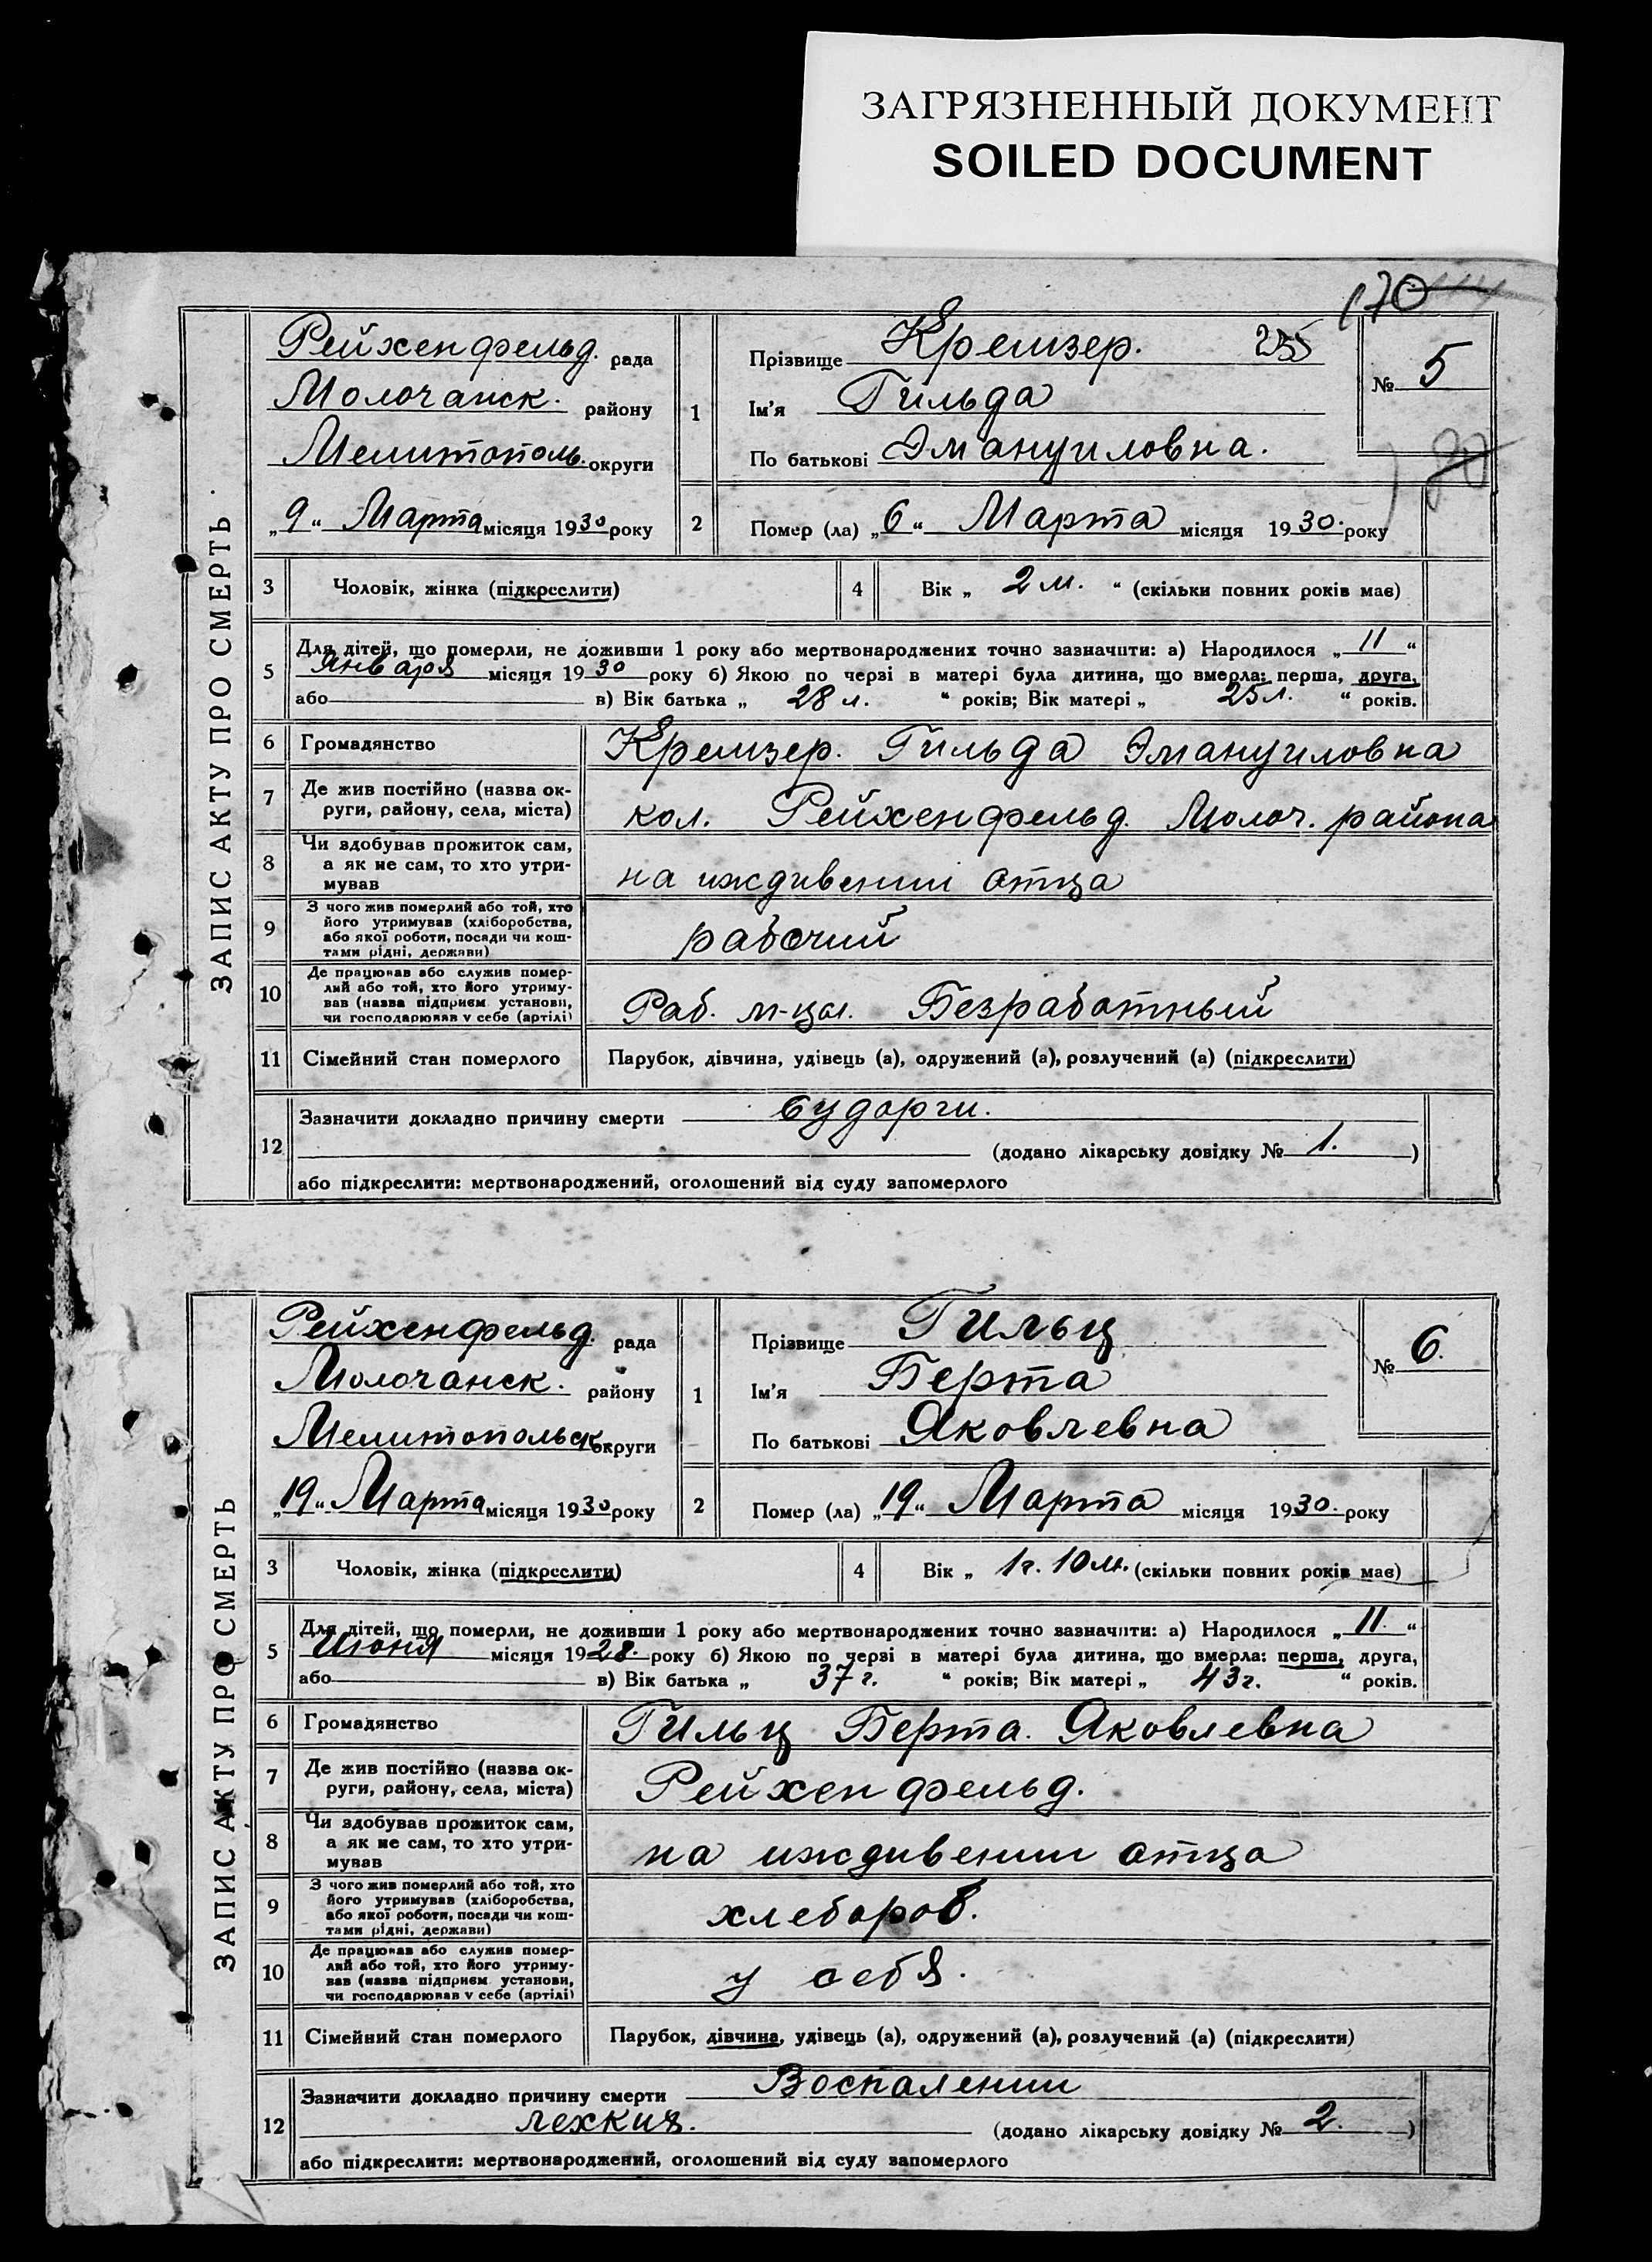 ЗАГРЯЗНЕННЫЙ ДОКУМЕНТ
SOILED DOCUMENT
170
ЗАПИС АКТУ ПРО СМЕРТЬ.
Рейхенфельд. рада
Молочанск. району
Мелитополь. округи
„9“ Марта місяця 1930 року
1
Прізвище Кремзер. 255
Ім'я Гильда
По батькові Эмануиловна.
№ 5
2
Помер (ла) „6“ Марта місяця 1930. року
3 Чоловік, жінка (підкреслити)
4 Вік „ 2 м. “ (скільки повних років має)
5 Для дітей, що померли, не доживши 1 року або мертвонароджених точно зазначити: а) Народилося „11“
Января місяця 1930 року б) Якою по черзі в матері була дитина, що вмерла: перша, друга,
або в) Вік батька „ 28 л. “ років; Вік матері „ 25 л. “ років.
6 Громадянство Кремзер. Гильда Эмануиловна
7 Де жив постійно (назва ок-
руги, району, села, міста) кол. Рейхенфельд. Молоч. района
8 Чи здобував прожиток сам,
а як не сам, то хто утри-
мував на иждивении отца
9 З чого жив померлий або той, хто
його утримував (хліборобства,
або якої роботи, посади чи кош-
тами рідні, держави) рабочий
10 Де працював або служив помер-
лий або той, хто його утриму-
вав (назва підприєм. установи,
чи господарював у себе (артілі) Раб. м-цы. Безработный
11 Сімейний стан померлого Парубок, дівчина, удівець (а), одружений (а), розлучений (а) (підкреслити)
12 Зазначити докладно причину смерти Судорги.
(додано лікарську довідку № 1. )
або підкреслити: мертвонароджений, оголошений від суду запомерлого
ЗАПИС АКТУ ПРО СМЕРТЬ
Рейхенфельд. рада
Молочанск. району
Мелитопольск. округи
„19“ Марта місяця 1930 року
1
Прізвище Гильц
Ім'я Берта
По батькові Яковлевна
№ 6.
2
Помер (ла) „19“ Марта місяця 1930. року
3 Чоловік, жінка (підкреслити)
4 Вік „ 1 г. 10 м. (скільки повних років має)
5 Для дітей, що померли, не доживши 1 року або мертвонароджених точно зазначити: а) Народилося „11.“
Июня місяця 1928. року б) Якою по черзі в матері була дитина, що вмерла: перша, друга,
або в) Вік батька „ 37 г. “ років; Вік матері „ 43 г. “ років.
6 Громадянство Гильц Берта. Яковлевна
7 Де жив постійно (назва ок-
руги, району, села, міста) Рейхенфельд.
8 Чи здобував прожиток сам,
а як не сам, то хто утри-
мував на иждивении отца
9 З чого жив померлий або той, хто
його утримував (хліборобства,
або якої роботи, посади чи кош-
тами рідні, держави) хлебороб.
10 Де працював або служив помер-
лий або той, хто його утриму-
вав (назва підприєм. установи,
чи господарював у себе (артілі) у себя.
11 Сімейний стан померлого Парубок, дівчина, удівець (а), одружений (а), розлучений (а) (підкреслити)
12 Зазначити докладно причину смерти Воспалении
лехких.
(додано лікарську довідку № 2. )
або підкреслити: мертвонароджений, оголошений від суду запомерлого